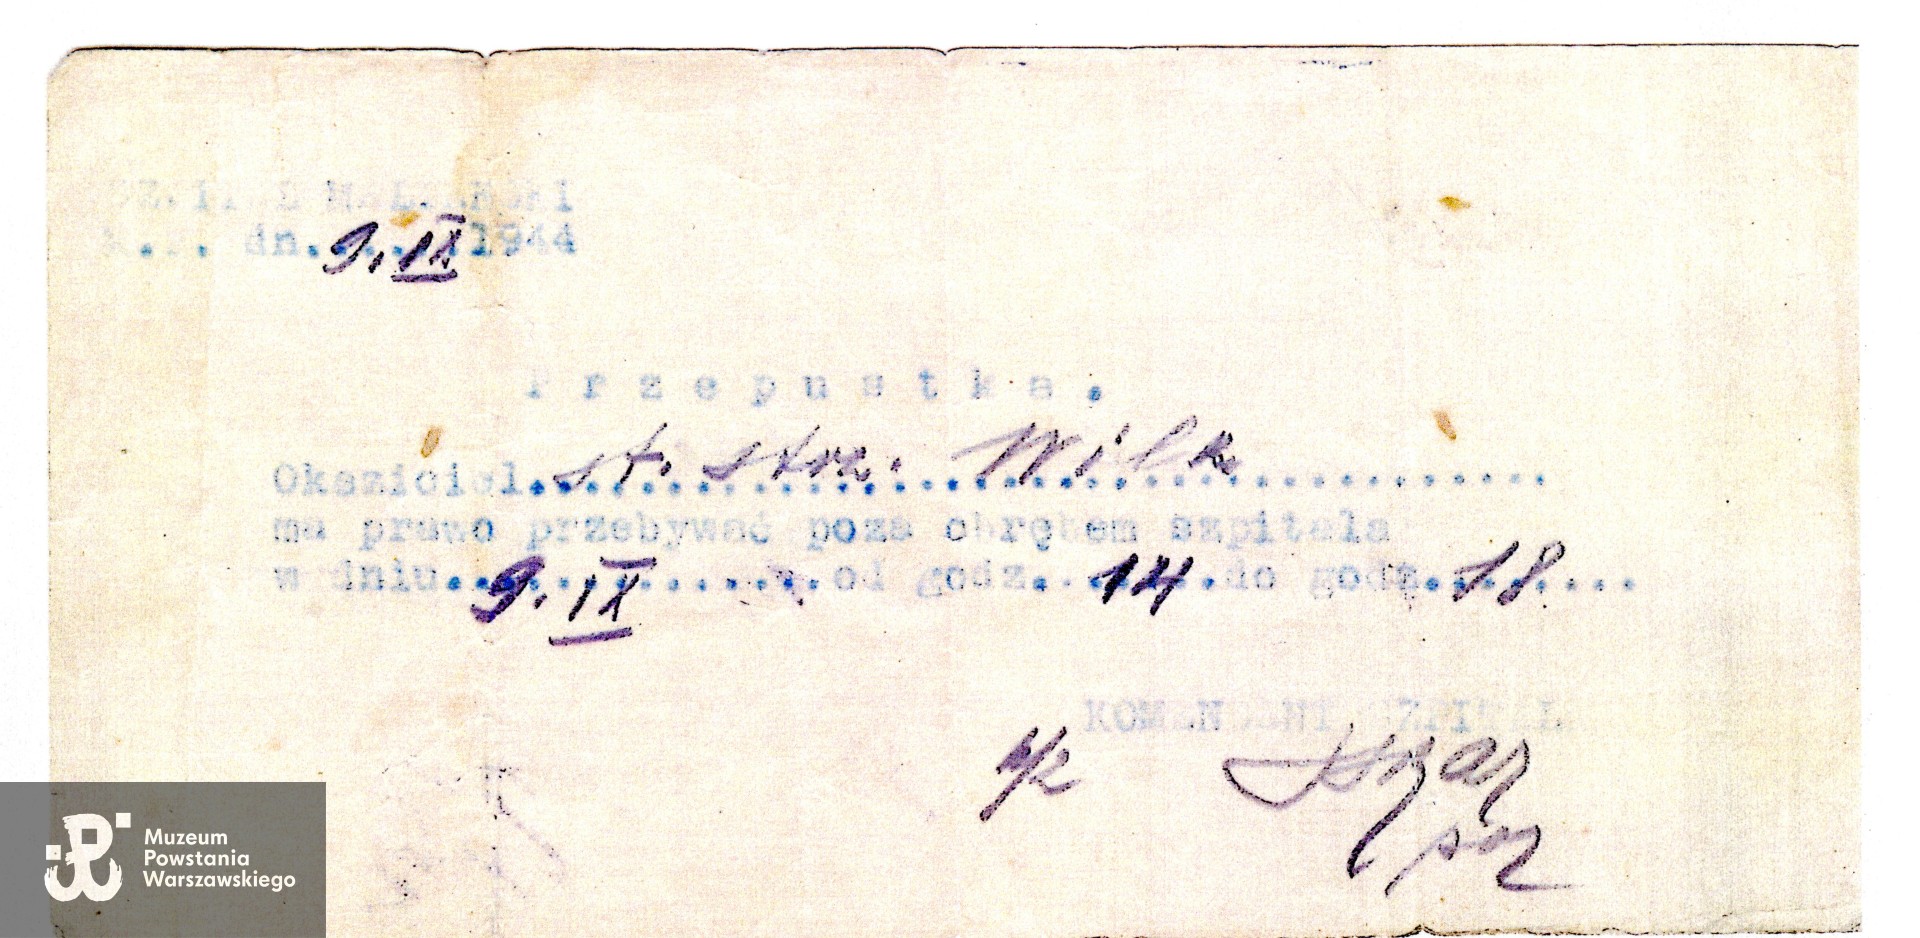 SZPITAL MALTAŃSKI
M.P. dn. 9. IX 1944
Przepustka.
Okaziciel st. strz. Wilk
ma prawo przebywać poza obrębem szpitala
w dniu 9. IX od godz. 14 do godz. 18
KOMENDANT SZPITALA
w/z
por
Muzeum
Powstania
Warszawskiego